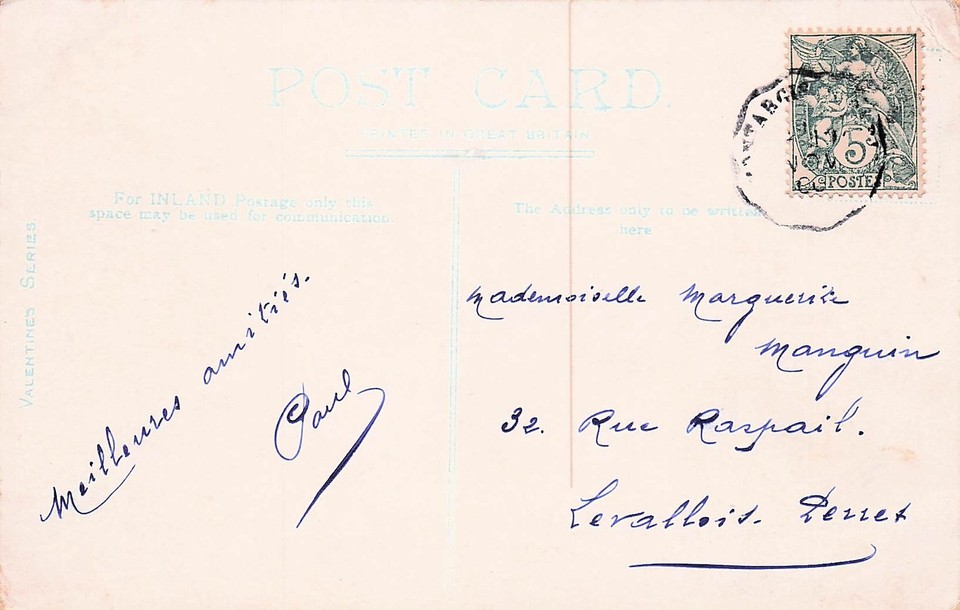 POST CARD.
PRINTED IN GREAT BRITAIN
For INLAND Postage only this
space may be used for communication.
The Address only to be written
here
VALENTINES SERIES
Meilleures amitiés.
Paul
Mademoiselle Marguerite
Manguin
32. Rue Raspail.
Levallois. Perret
5
POSTES